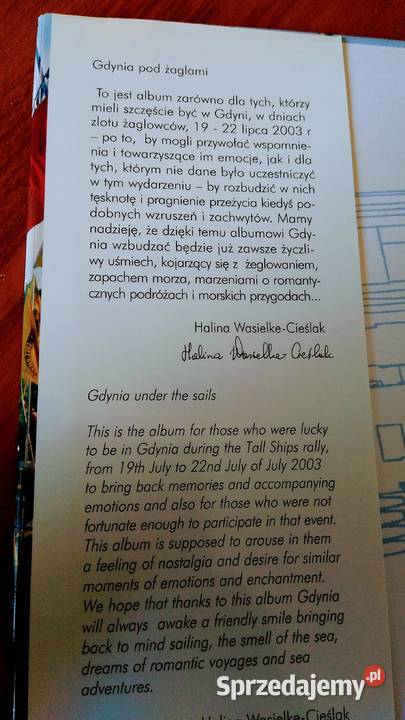 Gdynia pod żaglami
To jest album zarówno dla tych, którzy
mieli szczęście być w Gdyni, w dniach
zlotu żaglowców, 19 - 22 lipca 2003 r
– po to, by mogli przywołać wspomnie-
nia i towarzyszące im emocje, jak i dla
tych, którym nie dane było uczestniczyć
w tym wydarzeniu – by rozbudzić w nich
tęsknotę i pragnienie przeżycia kiedyś po-
dobnych wzruszeń i zachwytów. Mamy
nadzieję, że dzięki temu albumowi Gdy-
nia wzbudzać będzie już zawsze życzli-
wy uśmiech, kojarzący się z żeglowaniem,
zapachem morza, marzeniami o romanty-
cznych podróżach i morskich przygodach...
Halina Wasielke-Cieślak
Halina Wasielke-Cieślak
Gdynia under the sails
This is the album for those who were lucky
to be in Gdynia during the Tall Ships rally,
from 19th July to 22nd July of July 2003
to bring back memories and accompanying
emotions and also for those who were not
fortunate enough to participate in that event.
This album is supposed to arouse in them
a feeling of nostalgia and desire for similar
moments of emotions and enchantment.
We hope that thanks to this album Gdynia
will always awake a friendly smile bringing
back to mind sailing, the smell of the sea,
dreams of romantic voyages and sea
adventures.
Halina Wasielke-Cieślak
Sprzedajemy.pl